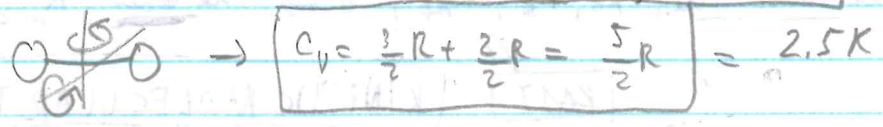 → Cv = 3/2 R + 2/2 R = 5/2 R = 2.5R